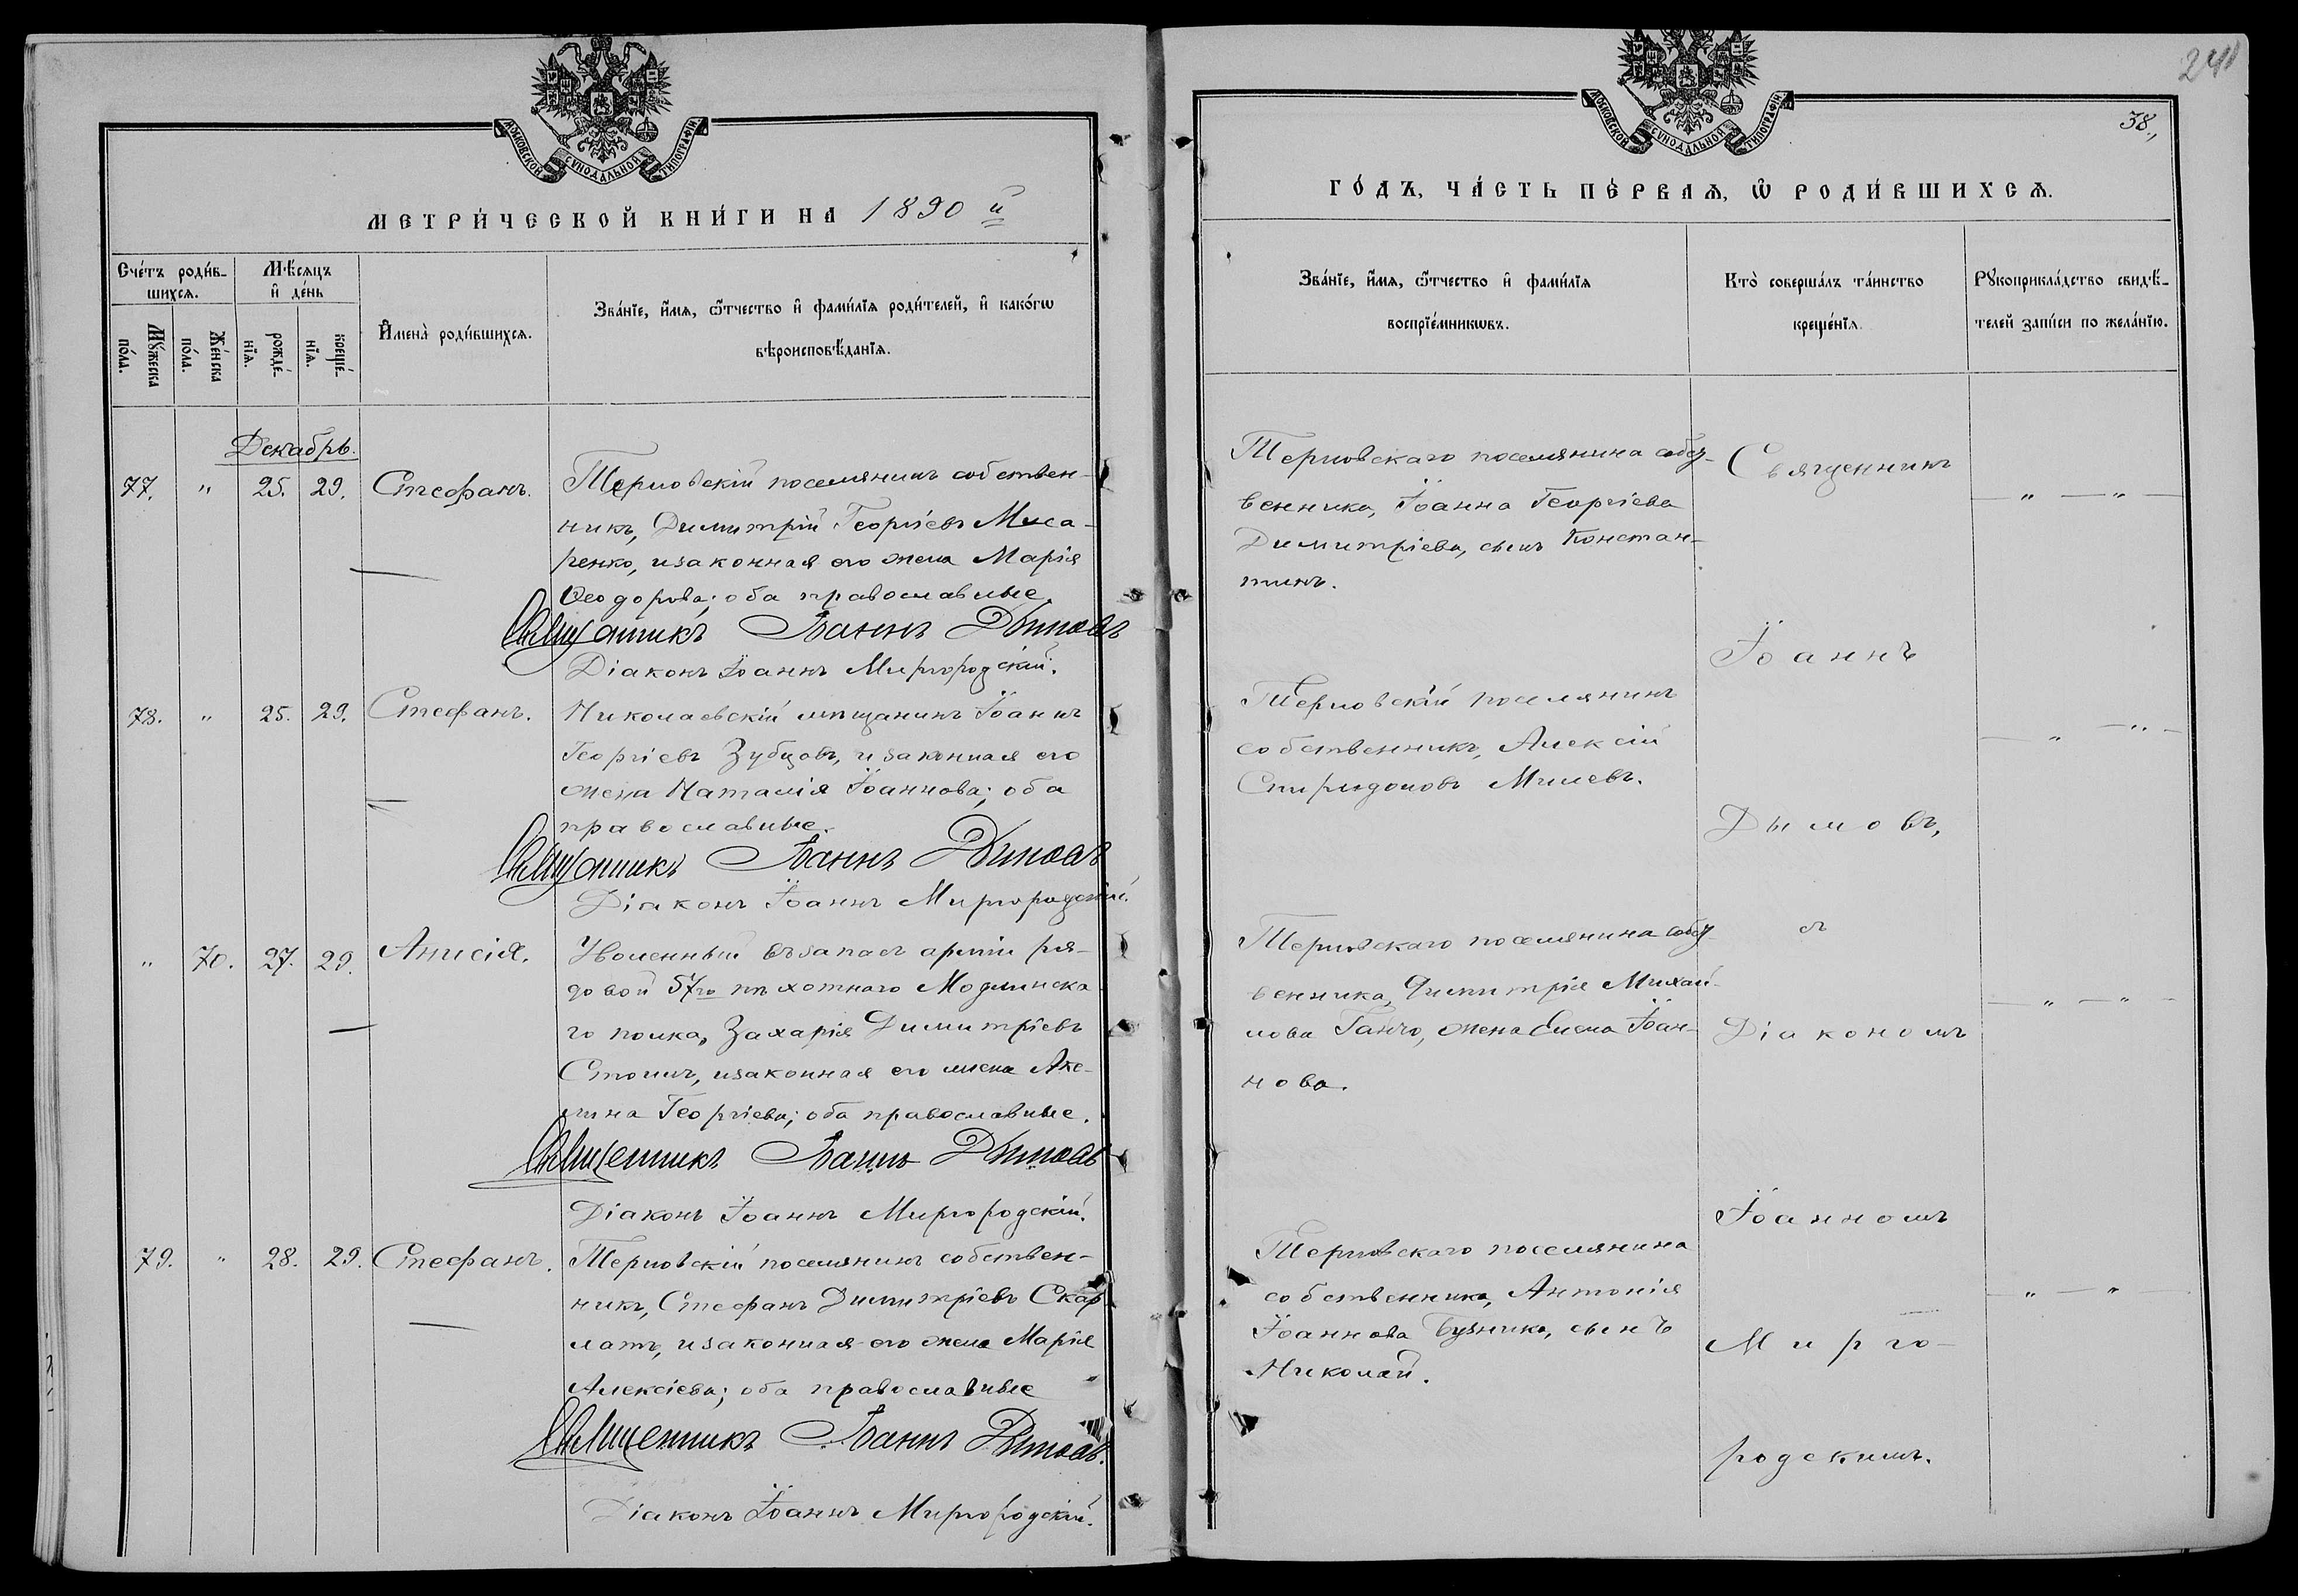 МОСКОВСКОЙ СѴНОДАЛЬНОЙ ТИПОГРАФІИ
МЕТРИ́ЧЕСКОЙ КНИ́ГИ НА 1890 й
Сче́тъ роди́в-
шихсѧ.
Мѣ́сѧцъ
и҆ де́нь
Мꙋ́жеска
по́ла.
Же́нска
по́ла.
рожде́-
нїѧ.
креще́-
нїѧ.
И҆мена̀ роди́вшихсѧ.
Зва́нїе, и҆́мѧ, ѻ҆́тчество и҆ фами́лїѧ роди́телей, и҆ како́гѡ
вѣроисповѣ́данїѧ.
Декабрь.
77. " 25. 29. Стефанъ.
Терновскій поселянинъ собствен-
никъ, Димитрій Георгіевъ Миса-
ренко, и законная его жена Марія
Ѳеодорова; оба православные.
Священникъ Іоаннъ Дымовъ
Діаконъ Іоаннъ Миргородскій.
78. " 25. 29. Стефанъ.
Николаевскій мѣщанинъ Іоаннъ
Георгіевъ Зубцовъ, и законная его
жена Наталія Іоаннова; оба
православные.
Священникъ Іоаннъ Дымовъ
Діаконъ Іоаннъ Миргородскій.
" 70. 27. 29. Анисія.
Уволенный въ запасъ арміи ря-
довой 57го пѣхотнаго Модлинска-
го полка, Захарія Димитріевъ
Стоинъ, и законная его жена Аке-
лина Георгіева; оба православные.
Священникъ Іоаннъ Дымовъ
Діаконъ Іоаннъ Миргородскій.
79. " 28. 29. Стефанъ.
Терновскій поселянинъ собствен-
никъ, Стефанъ Димитріевъ Скар-
латъ, и законная его жена Марія
Алексіева; оба православные
Священникъ Іоаннъ Дымовъ.
Діаконъ Іоаннъ Миргородскій.
241
38.,
МОСКОВСКОЙ СѴНОДАЛЬНОЙ ТИПОГРАФІИ
ГО́ДЪ, ЧА́СТЬ ПЕ́РВАѦ, Ѡ҆ РОДИ́ВШИХСѦ.
Зва́нїе, и҆́мѧ, ѻ҆́тчество и҆ фами́лїѧ
воспрїе́мникѡвъ.
Кто̀ соверша́лъ та́инство
креще́нїѧ.
Рꙋкоприкла́дство свидѣ́-
телей за́писи по жела́нїю.
Терновскаго поселянина собст-
венника, Іоанна Георгіева
Димитріева, сынъ Констан-
тинъ.
Терновскій поселянинъ
собственникъ, Алексій
Спиридоновъ Милевъ.
Терновскаго поселянина собст-
венника, Димитрія Михай-
лова Ганчо, жена Елена Іоан-
нова.
Терновскаго поселянина
собственника, Антонія
Іоаннова Бузника, сынъ
Николай.
Священникъ
Іоаннъ
Дымовъ,
съ
Діакономъ
Іоанномъ
Мирго-
родскимъ.